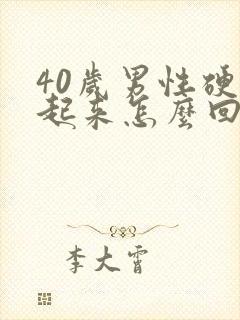 40歲男性硬
起來怎麼回
李大霄